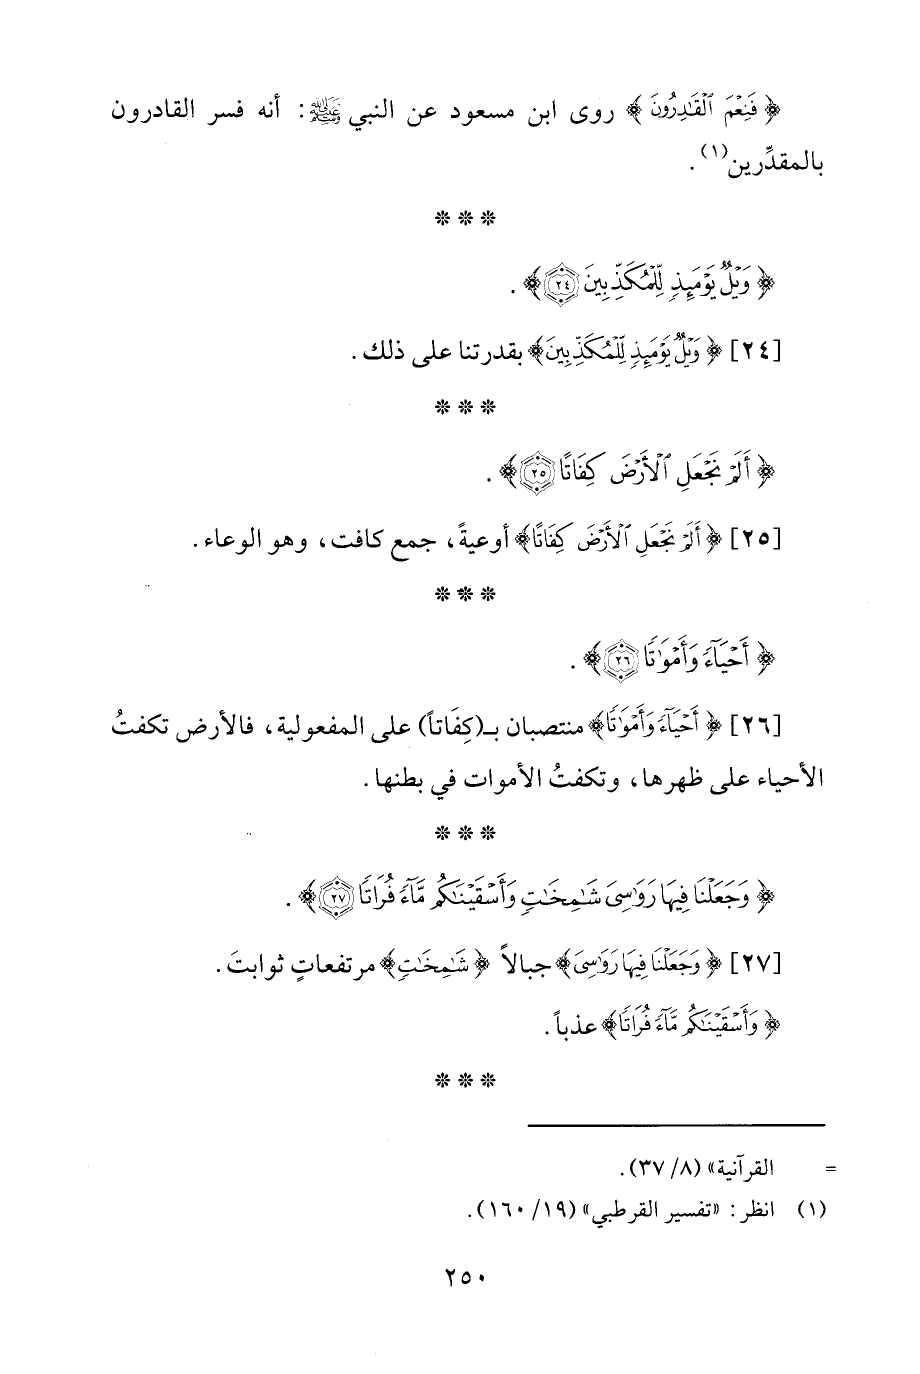 ﴿ فَنِعْمَ ٱلْقَٰدِرُونَ ﴾ روى ابن مسعود عن النبي ﷺ: أنه فسر القادرون
بالمقدِّرين(١).
* * *
﴿ وَيْلٌ يَوْمَئِذٍ لِّلْمُكَذِّبِينَ ٢٤ ﴾.
[٢٤] ﴿ وَيْلٌ يَوْمَئِذٍ لِّلْمُكَذِّبِينَ﴾ بقدرتنا على ذلك.
* * *
﴿ أَلَمْ نَجْعَلِ ٱلْأَرْضَ كِفَاتًا ٢٥ ﴾.
[٢٥] ﴿ أَلَمْ نَجْعَلِ ٱلْأَرْضَ كِفَاتًا﴾ أوعيةً، جمع كافت، وهو الوعاء.
* * *
﴿ أَحْيَآءً وَأَمْوَٰتًا ٢٦ ﴾.
[٢٦] ﴿ أَحْيَآءً وَأَمْوَٰتًا﴾ منتصبان بـ(كِفَاتاً) على المفعولية، فالأرض تكفتُ
الأحياء على ظهرها، وتكفتُ الأموات في بطنها.
* * *
﴿ وَجَعَلْنَا فِيهَا رَوَٰسِىَ شَٰمِخَٰتٍ وَأَسْقَيْنَٰكُم مَّآءً فُرَاتًا ٢٧ ﴾.
[٢٧] ﴿ وَجَعَلْنَا فِيهَا رَوَٰسِىَ﴾ جبالاً ﴿ شَٰمِخَٰتٍ﴾ مرتفعاتٍ ثوابتَ.
﴿ وَأَسْقَيْنَٰكُم مَّآءً فُرَاتًا﴾ عذباً.
* * *
= القرآنية» (٨/ ٣٧).
(١) انظر: «تفسير القرطبي» (١٩/ ١٦٠).
٢٥٠